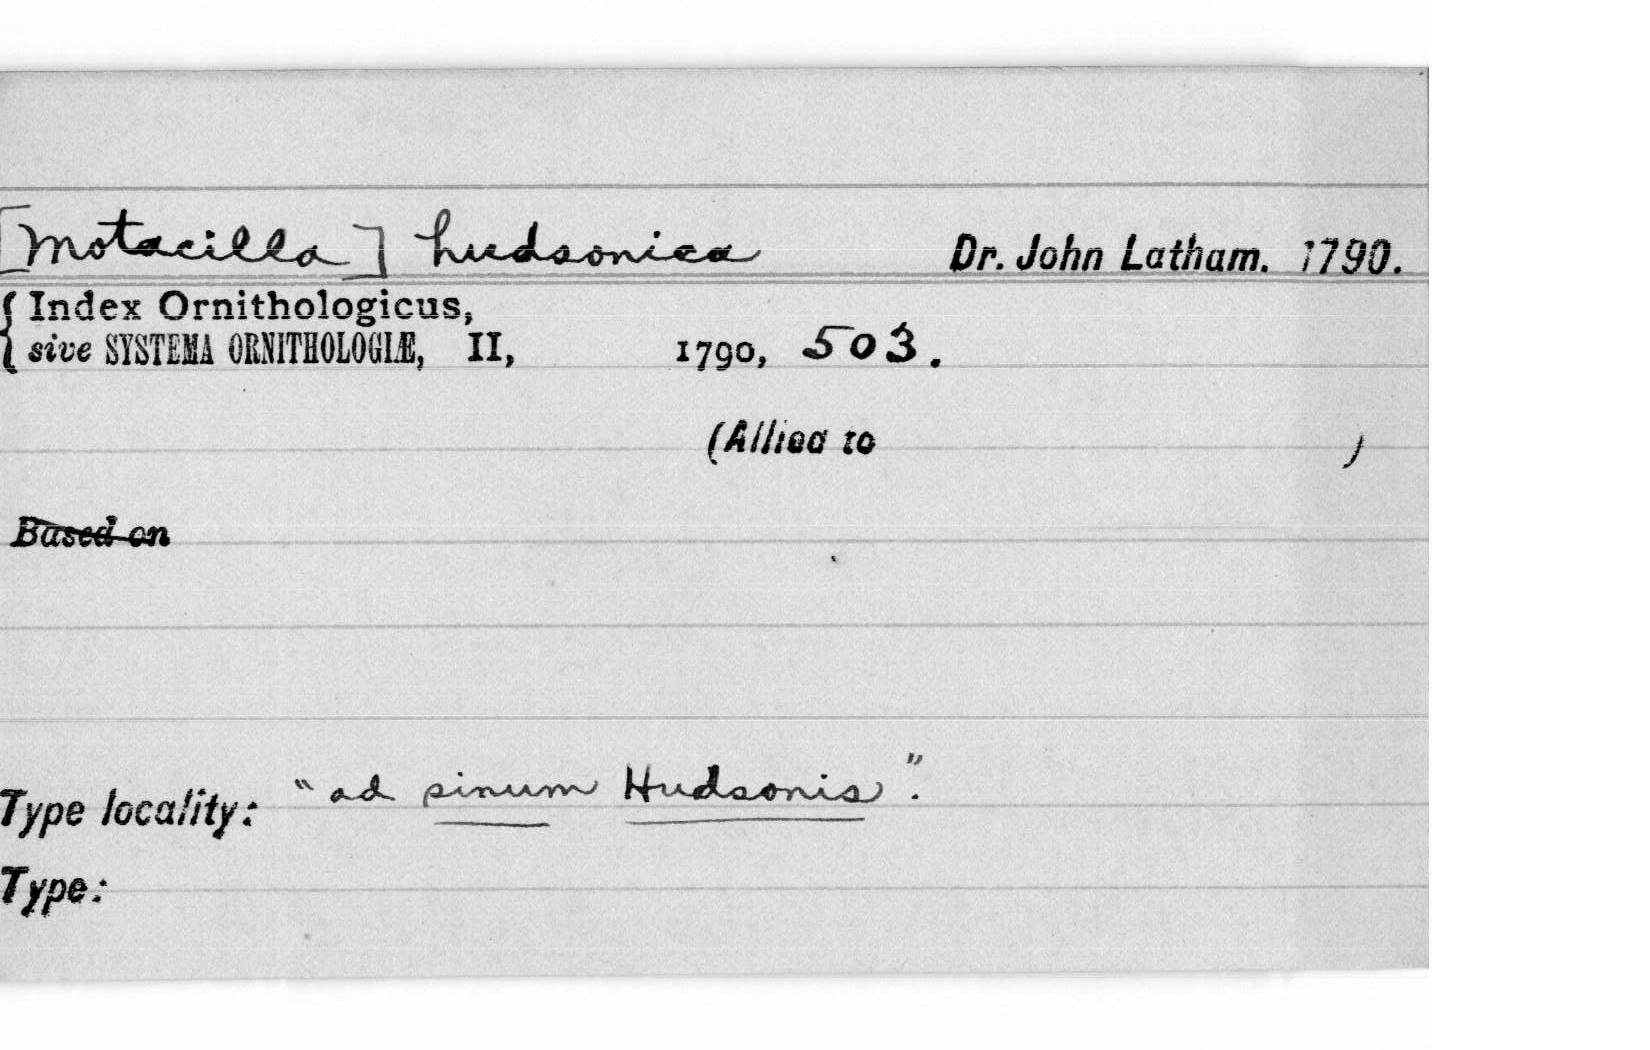 [Motacilla] hudsonica Dr. John Latham. 1790.
{ Index Ornithologicus,
sive SYSTEMA ORNITHOLOGIÆ, II, 1790, 503.
(Allied to )
Based on
Type locality: "ad sinum Hudsonis".
Type: